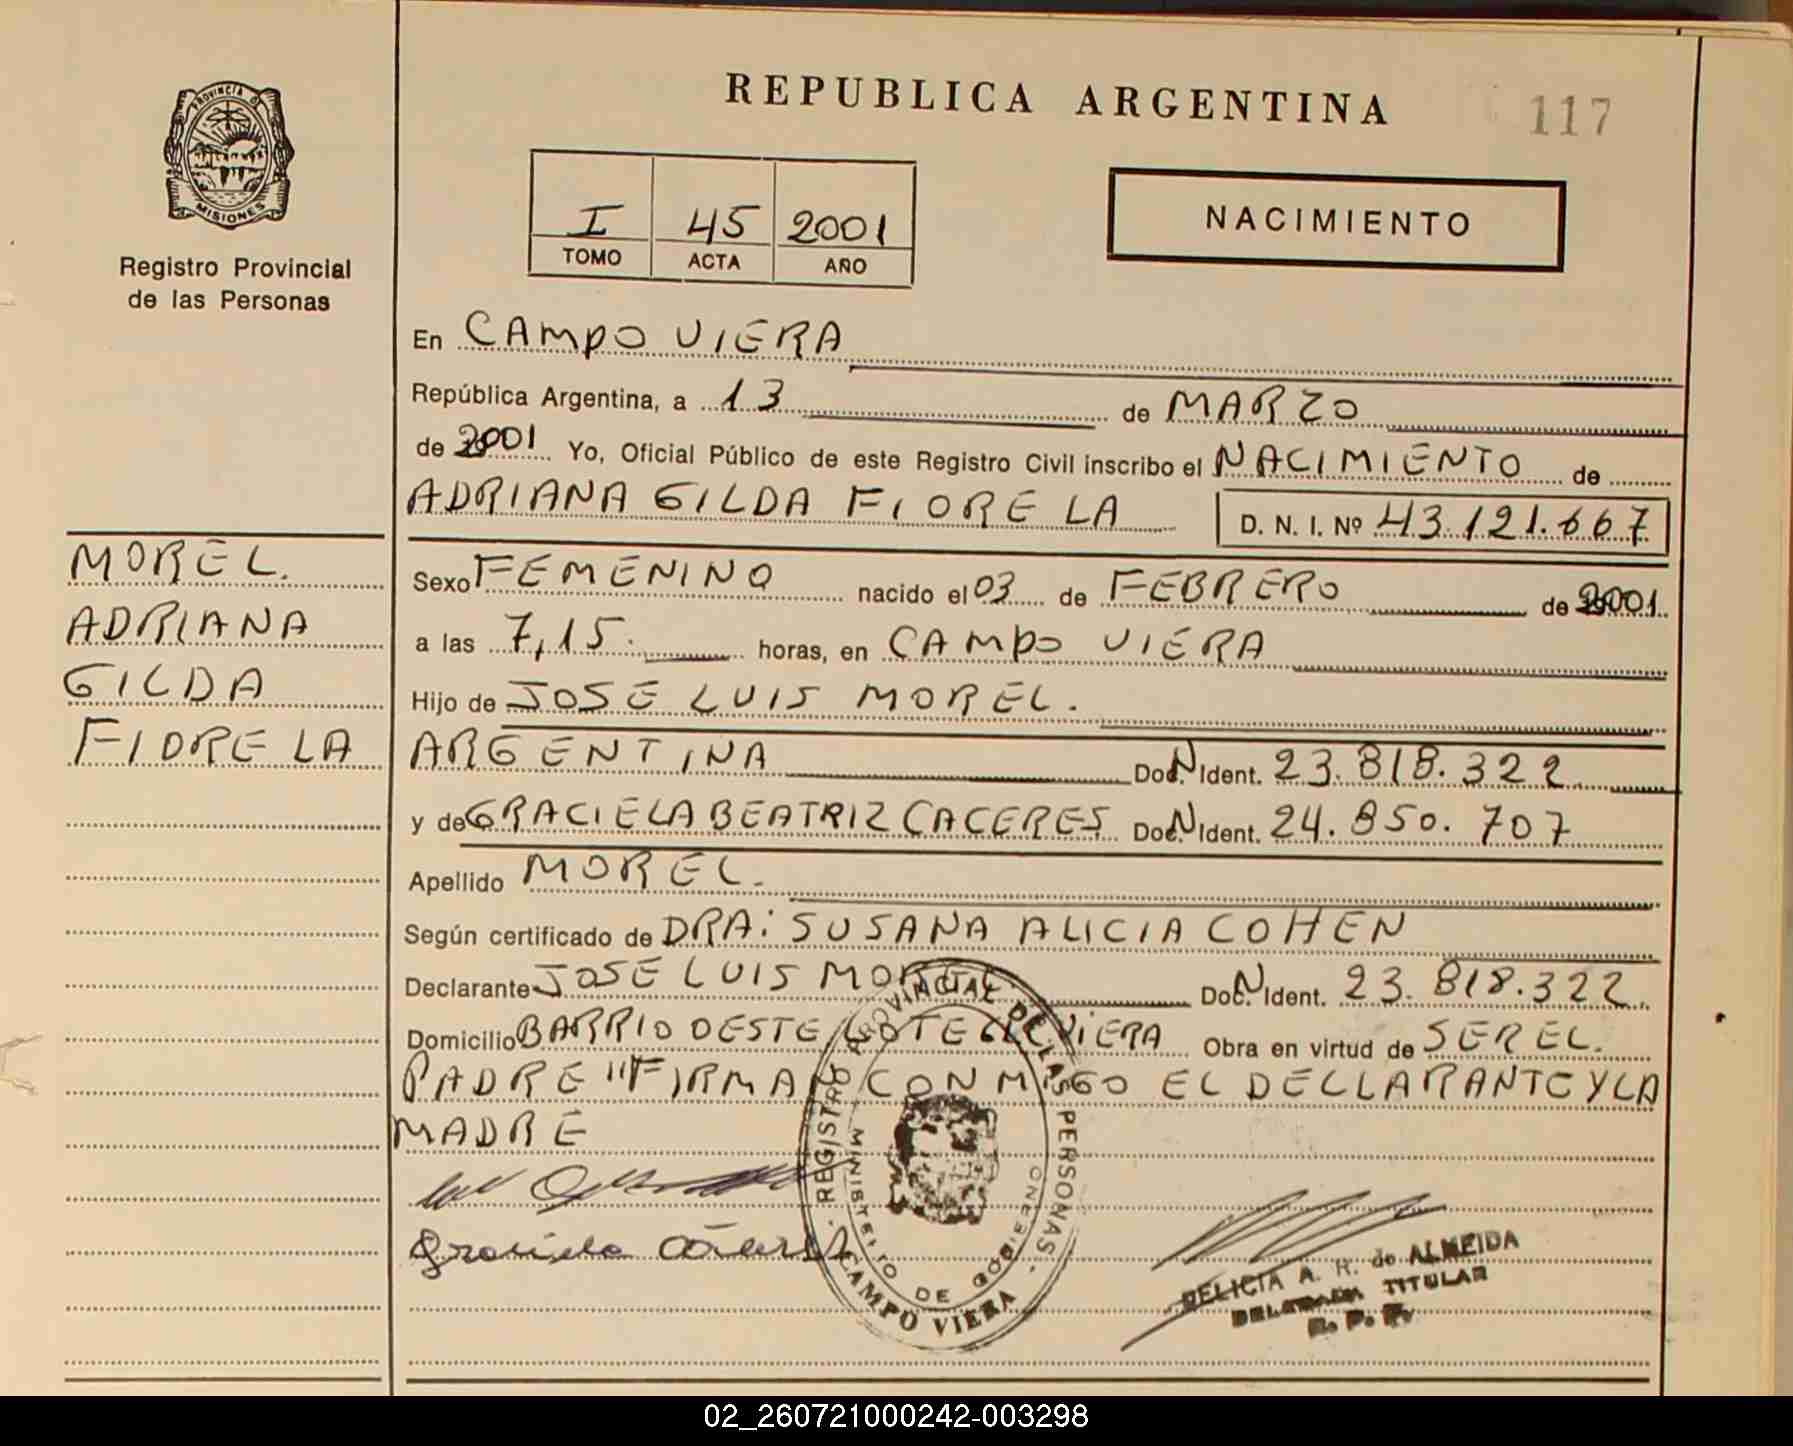 REPUBLICA ARGENTINA
117
PROVINCIA DE
MISIONES
Registro Provincial
de las Personas
I 45 2001
TOMO ACTA AÑO
NACIMIENTO
En CAMPO VIERA
República Argentina, a 13 de MARZO
de 2001 Yo, Oficial Público de este Registro Civil inscribo el NACIMIENTO de
ADRIANA GILDA FIORE LA D. N. I. Nº 43.121.667
Sexo FEMENINO nacido el 03 de FEBRERO de 2001
a las 7,15. horas, en CAMPO VIERA
Hijo de JOSE LUIS MOREL.
ARGENTINA Doc. N Ident. 23.818.322
y de GRACIELA BEATRIZ CACERES Doc. N Ident. 24.850.707
Apellido MOREL.
Según certificado de DRA: SUSANA ALICIA COHEN
Declarante JOSE LUIS MOREL Doc. N Ident. 23.818.322
Domicilio BARRIO OESTE, LOTE VIERA Obra en virtud de SER EL.
PADRE "FIRMAN CON MIGO EL DECLLARANTE Y LA
MADRE
MOREL.
ADRIANA
GILDA
FIORE LA
Graciela Cáceres
REGISTRO PROVINCIAL DE LAS PERSONAS
MINISTERIO DE GOBIERNO
CAMPO VIERA
DELICIA A. R. de ALMEIDA
DELEGADA TITULAR
R. P. P.
02_260721000242-003298